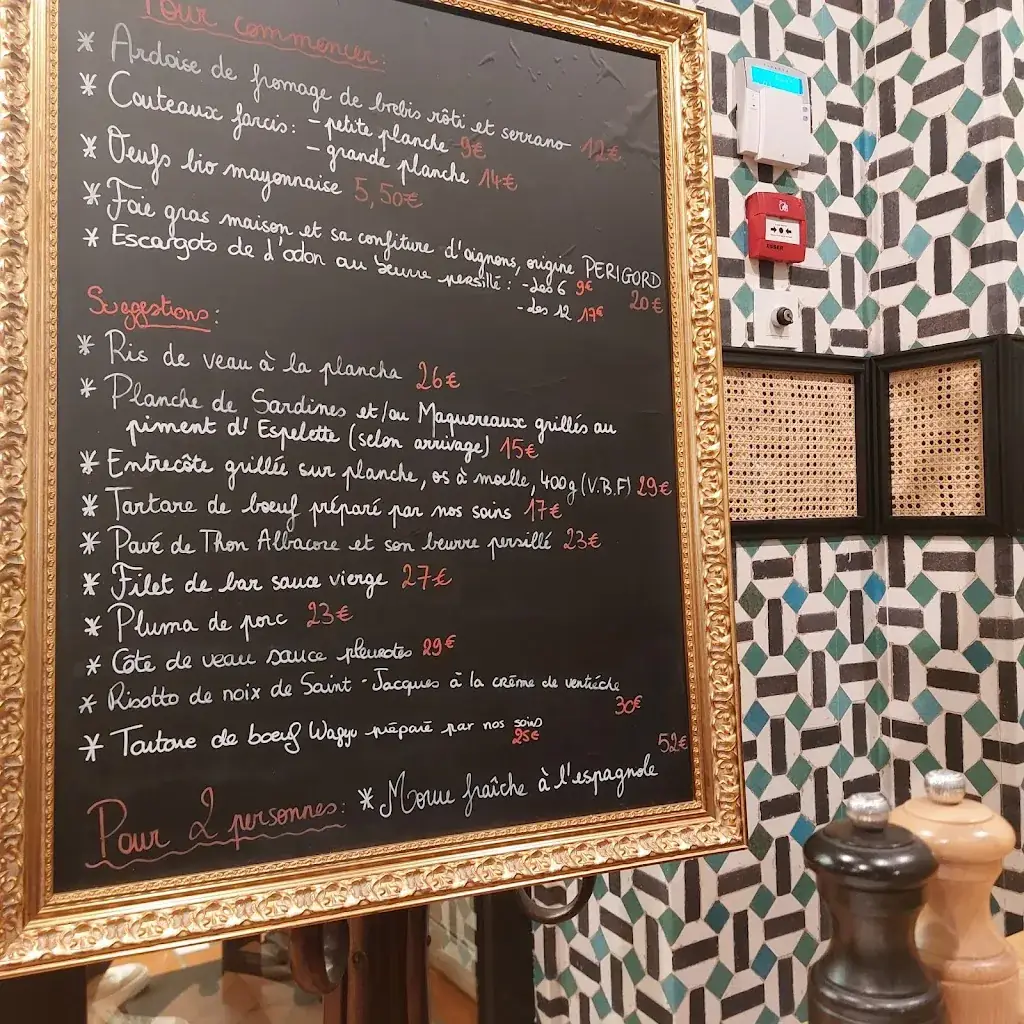 Pour commencer:
* Ardoise de fromage de brebis rôti et serrano 12€
* Couteaux farcis: - petite planche 9€
- grande planche 14€
* Oeufs bio mayonnaise 5,50€
* Foie gras maison et sa confiture d'oignons, origine PERIGORD 20€
* Escargots de l'odon au beurre persillé: - Les 6 9€
- Les 12 17€
Suggestions:
* Ris de veau à la plancha 26€
* Planche de Sardines et/ou Maquereaux grillés au
piment d'Espelette (selon arrivage) 15€
* Entrecôte grillée sur planche, os à moelle, 400g (V.B.F) 29€
* Tartare de bœuf préparé par nos soins 17€
* Pavé de Thon Albacore et son beurre persillé 23€
* Filet de bar sauce vierge 27€
* Pluma de porc 23€
* Côte de veau sauce pleurotes 29€
* Risotto de noix de Saint-Jacques à la crème de ventrèche
30€
* Tartare de bœuf Wagyu préparé par nos soins
25€
Pour 2 personnes: * Morue fraîche à l'espagnole 52€